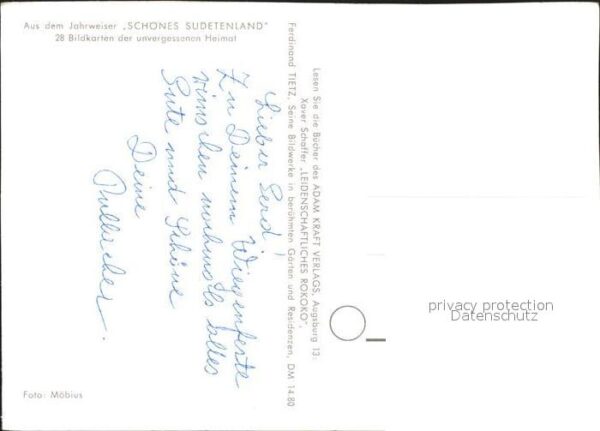 Aus dem Jahrweiser „SCHÖNES SUDETENLAND"
28 Bildkarten der unvergessenen Heimat
Lieber Gerd!
Zu Deinem Wiegenfeste
wünschen nochmals alles
Gute und Schöne
Deine
Lesen Sie die Bücher des ADAM KRAFT VERLAGS, Augsburg 13:
Xaver Schaffer „LEIDENSCHAFTLICHES ROKOKO",
Ferdinand TIETZ, Seine Bildwerke in berühmten Gärten und Residenzen, DM 14.80
privacy protection
Datenschutz
Foto: Möbius